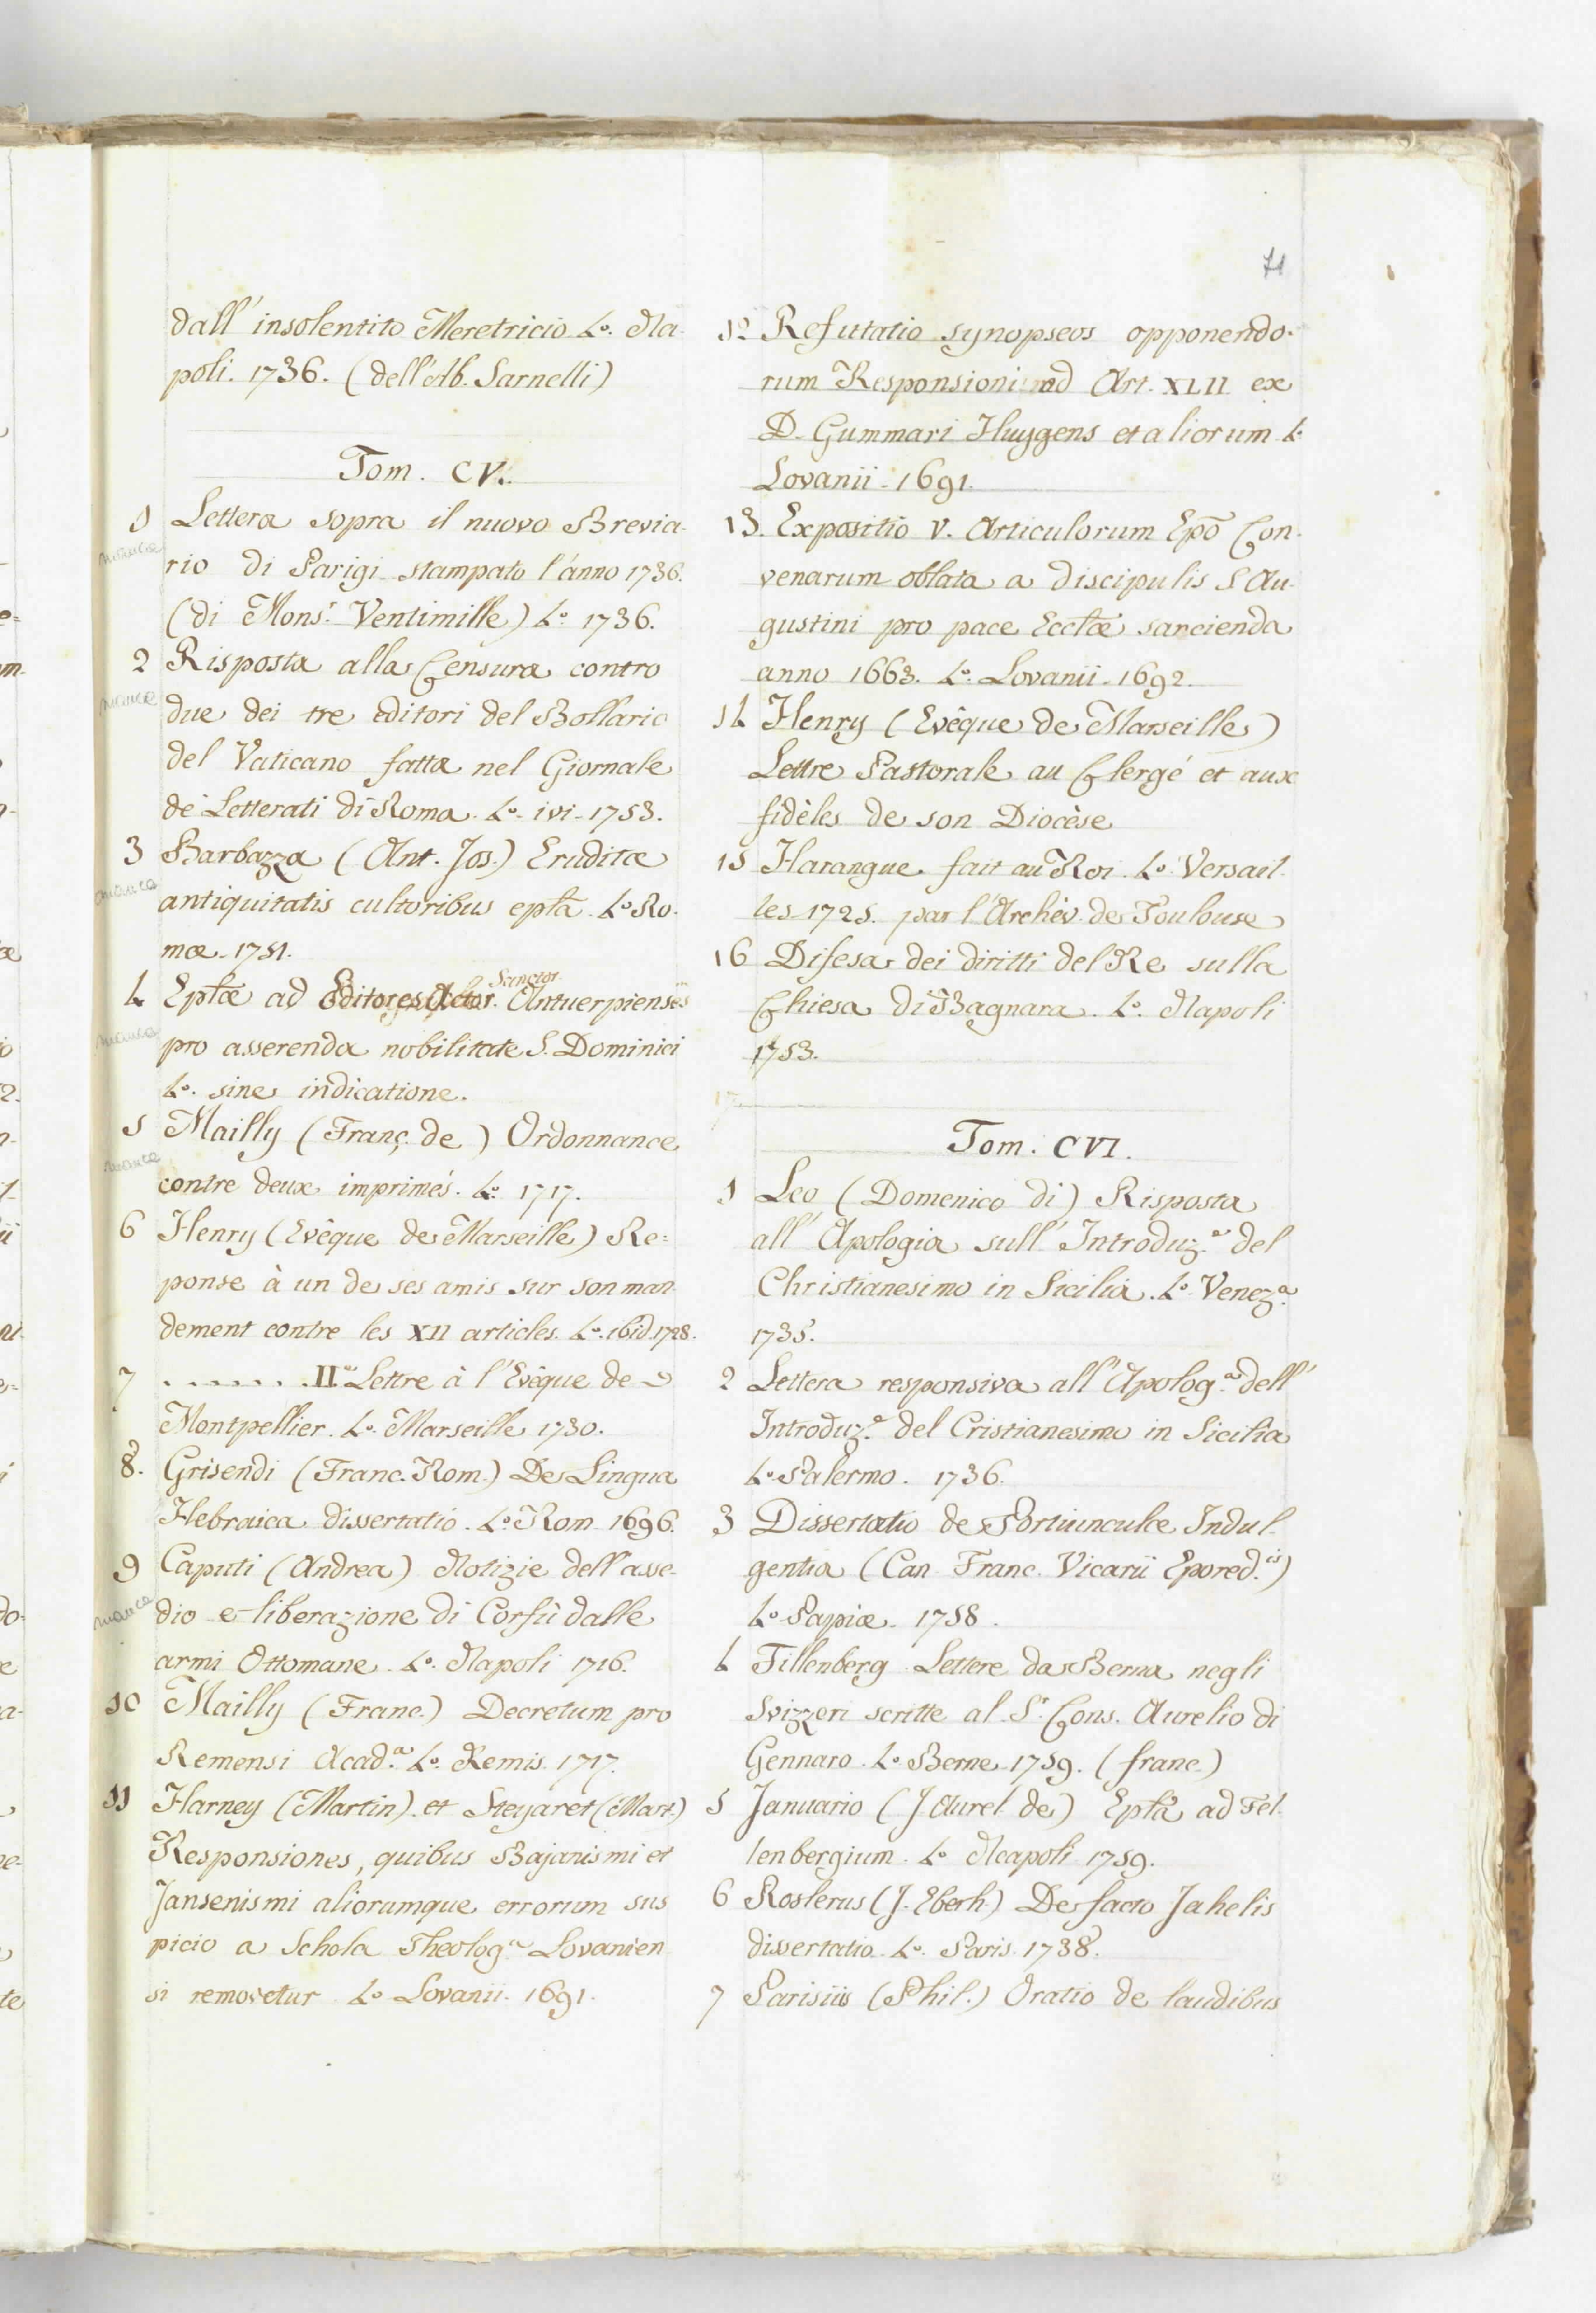 71
dall' insolentito Meretricio. 4.o Na-
poli. 1736. (dell'Ab. Sarnelli)
Tom. CV.
1 Lettera sopra il nuovo Brevia-
manca
rio di Parigi stampato l'anno 1736.
(di Mons.r Ventimille) 4.o 1736.
2 Risposta alla Censura contro
manca
due dei tre editori del Bollario
del Vaticano fatta nel Giornale
de' Letterati di Roma. 4.o ivi. 1753.
3 Barbazza (Ant. Jos.) Eruditæ
manca
antiquitatis cultoribus epla. 4.o Ro-
mæ. 1751.
Sanctor.
4 Eplæ ad Editores Actor. Antuerpienses
manca
pro asserenda nobilitate S. Dominici
4.o sine indicatione.
5 Mailly (Franç. de) Ordonnance
manca
contre deux imprimés. 4.o 1717.
6 Henry (Evêque de Marseille) Re=
ponse à un de ses amis sur son man-
dement contre les XII articles. 4.o ibid. 1728.
7 . . . . . . . II.e Lettre à l'Evêque de
Montpellier. 4.o Marseille 1730.
8. Grisendi (Franc. Rom.) De Lingua
Hebraica dissertatio. 4.o Rom 1696.
9 Caputi (Andrea) Notizie dell'asse-
manca
dio e liberazione di Corfù dalle
armi Ottomane. 4.o Napoli 1716.
10 Mailly (Franc.) Decretum pro
Remensi Acad.a 4.o Remis. 1717.
11 Harney (Martin) et Steyaret (Mart.)
Responsiones, quibus Bajanismi et
Jansenismi aliorumque errorum sus
picio a Schola Theolog.a Lovanien
si removetur 4.o Lovanii. 1691.
12 Refutatio synopseos opponendo-
rum Responsioni ad Art. XLII ex
D. Gummari Huygens et aliorum 4.o
Lovanii. 1691.
13. Expositio V. Articulorum Epo Con-
venarum oblata a discipulis S. Au-
gustini pro pace Ecclæ sarcienda
anno 1663. 4.o Lovanii. 1692.
14 Henry (Evêque de Marseille)
Lettre Pastorale au Clergé et aux
fidèles de son Diocèse
15 Harangue fait au Roi. 4.o Versail-
les 1725. par l'Archêv. de Toulouse
16 Difesa dei diritti del Re sulla
Chiesa di Bagnara. 4.o Napoli
1753.
17.
Tom. CVI.
1 Leo (Domenico di) Risposta
all' Apologia sull' Introduz.e del
Christianesimo in Sicilia. 4.o Venez.a
1735.
2 Lettera responsiva all'Apolog.a dell'
Introduz.e del Cristianesimo in Sicilia
4.o Palermo. 1736.
3 Dissertatio de Portiunculæ Indul-
gentia (Can. Franc. Vicarii Epored.is)
4.o Papiæ. 1758.
4 Fillenberg Lettere da Berna negli
Svizzeri scritte al S.r Cons. Aurelio di
Gennaro. 4.o Berne 1759. (franc.)
5 Januario (J. Aurel. de) Epla ad Fel-
lenbergium. 4.o Neapoli 1759.
6 Roslerus (J. Eberh.) De facto Jahelis
dissertatio. 4.o Paris. 1738.
7 Parisiis (Phil.) Oratio de laudibus